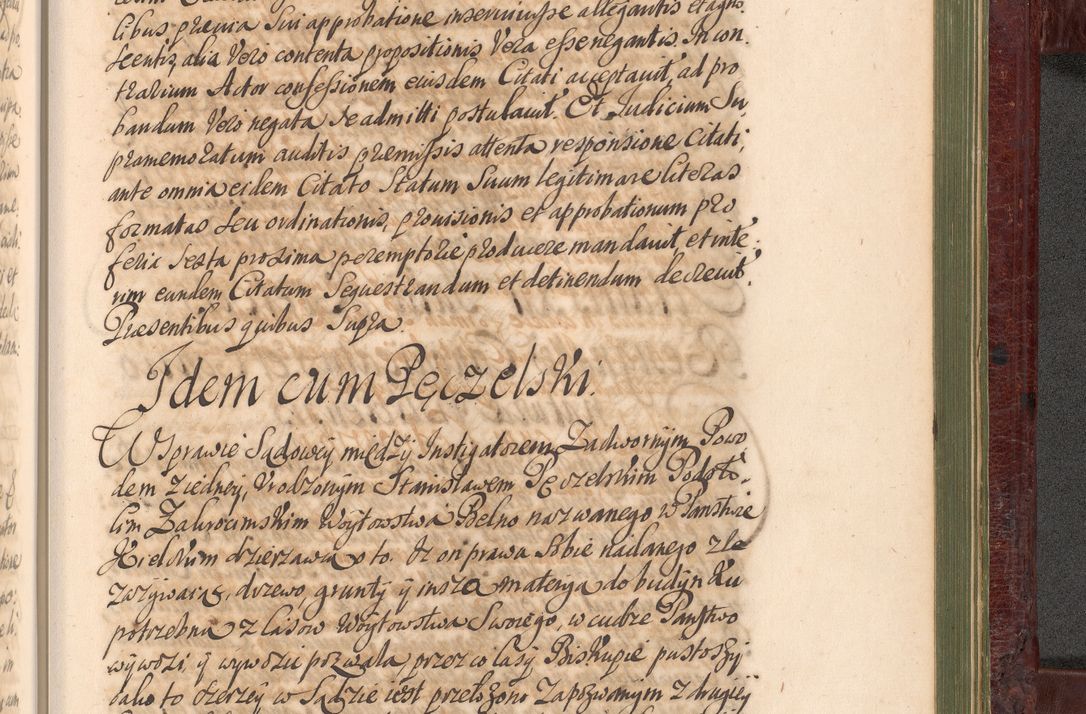 libus, prævia Sui approbatione inserviuisse allegantis et agno
scentis, alia Vero contenta propositionis Vera esse negantis. In con
trarium Actor confessionem eiusdem Citati acceptavit, ad pro
bandum Vero negata se admitti postulavit. Et Judicium Su
pramemoratum auditis præmissis attenta responsione Citati,
ante omnia eidem Citato Statum Suum legitimare literas
formatas seu ordinationis, provisionis et approbationum pro
feria sexta proxima peremptorie producere mandavit, et inte
rim eundem Citatum Sequestrandum et detinendum decrevit.
Præsentibus quibus Supra.
Idem cum Pęczelski.
W Sprawie Sądowey między Instigatorem Zadwornym Powo
dem z iedney, Urodzonym Stanisławem Pęczelskim Podsto
lim Zakrocimskim Woytowstwa Bielno nazwanego w Państwie
Kielckim dzierzawcą o to. Iz on prawa Sobie nadanego zle
zazywaiąc, drzewo, grunty y insza materyą do budynku
potrzebną z lasow Woytowstwa Swoiego, w cudze Państwo
wywozi y wywozic pozwala przez co lasy Biskupie pustoszy
iako to szerzey w Sądzie iest przełozono Zapozwanym z drugiey